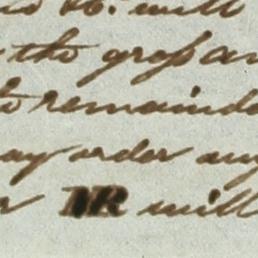 will
the groſs an
remainde
ay order any
will